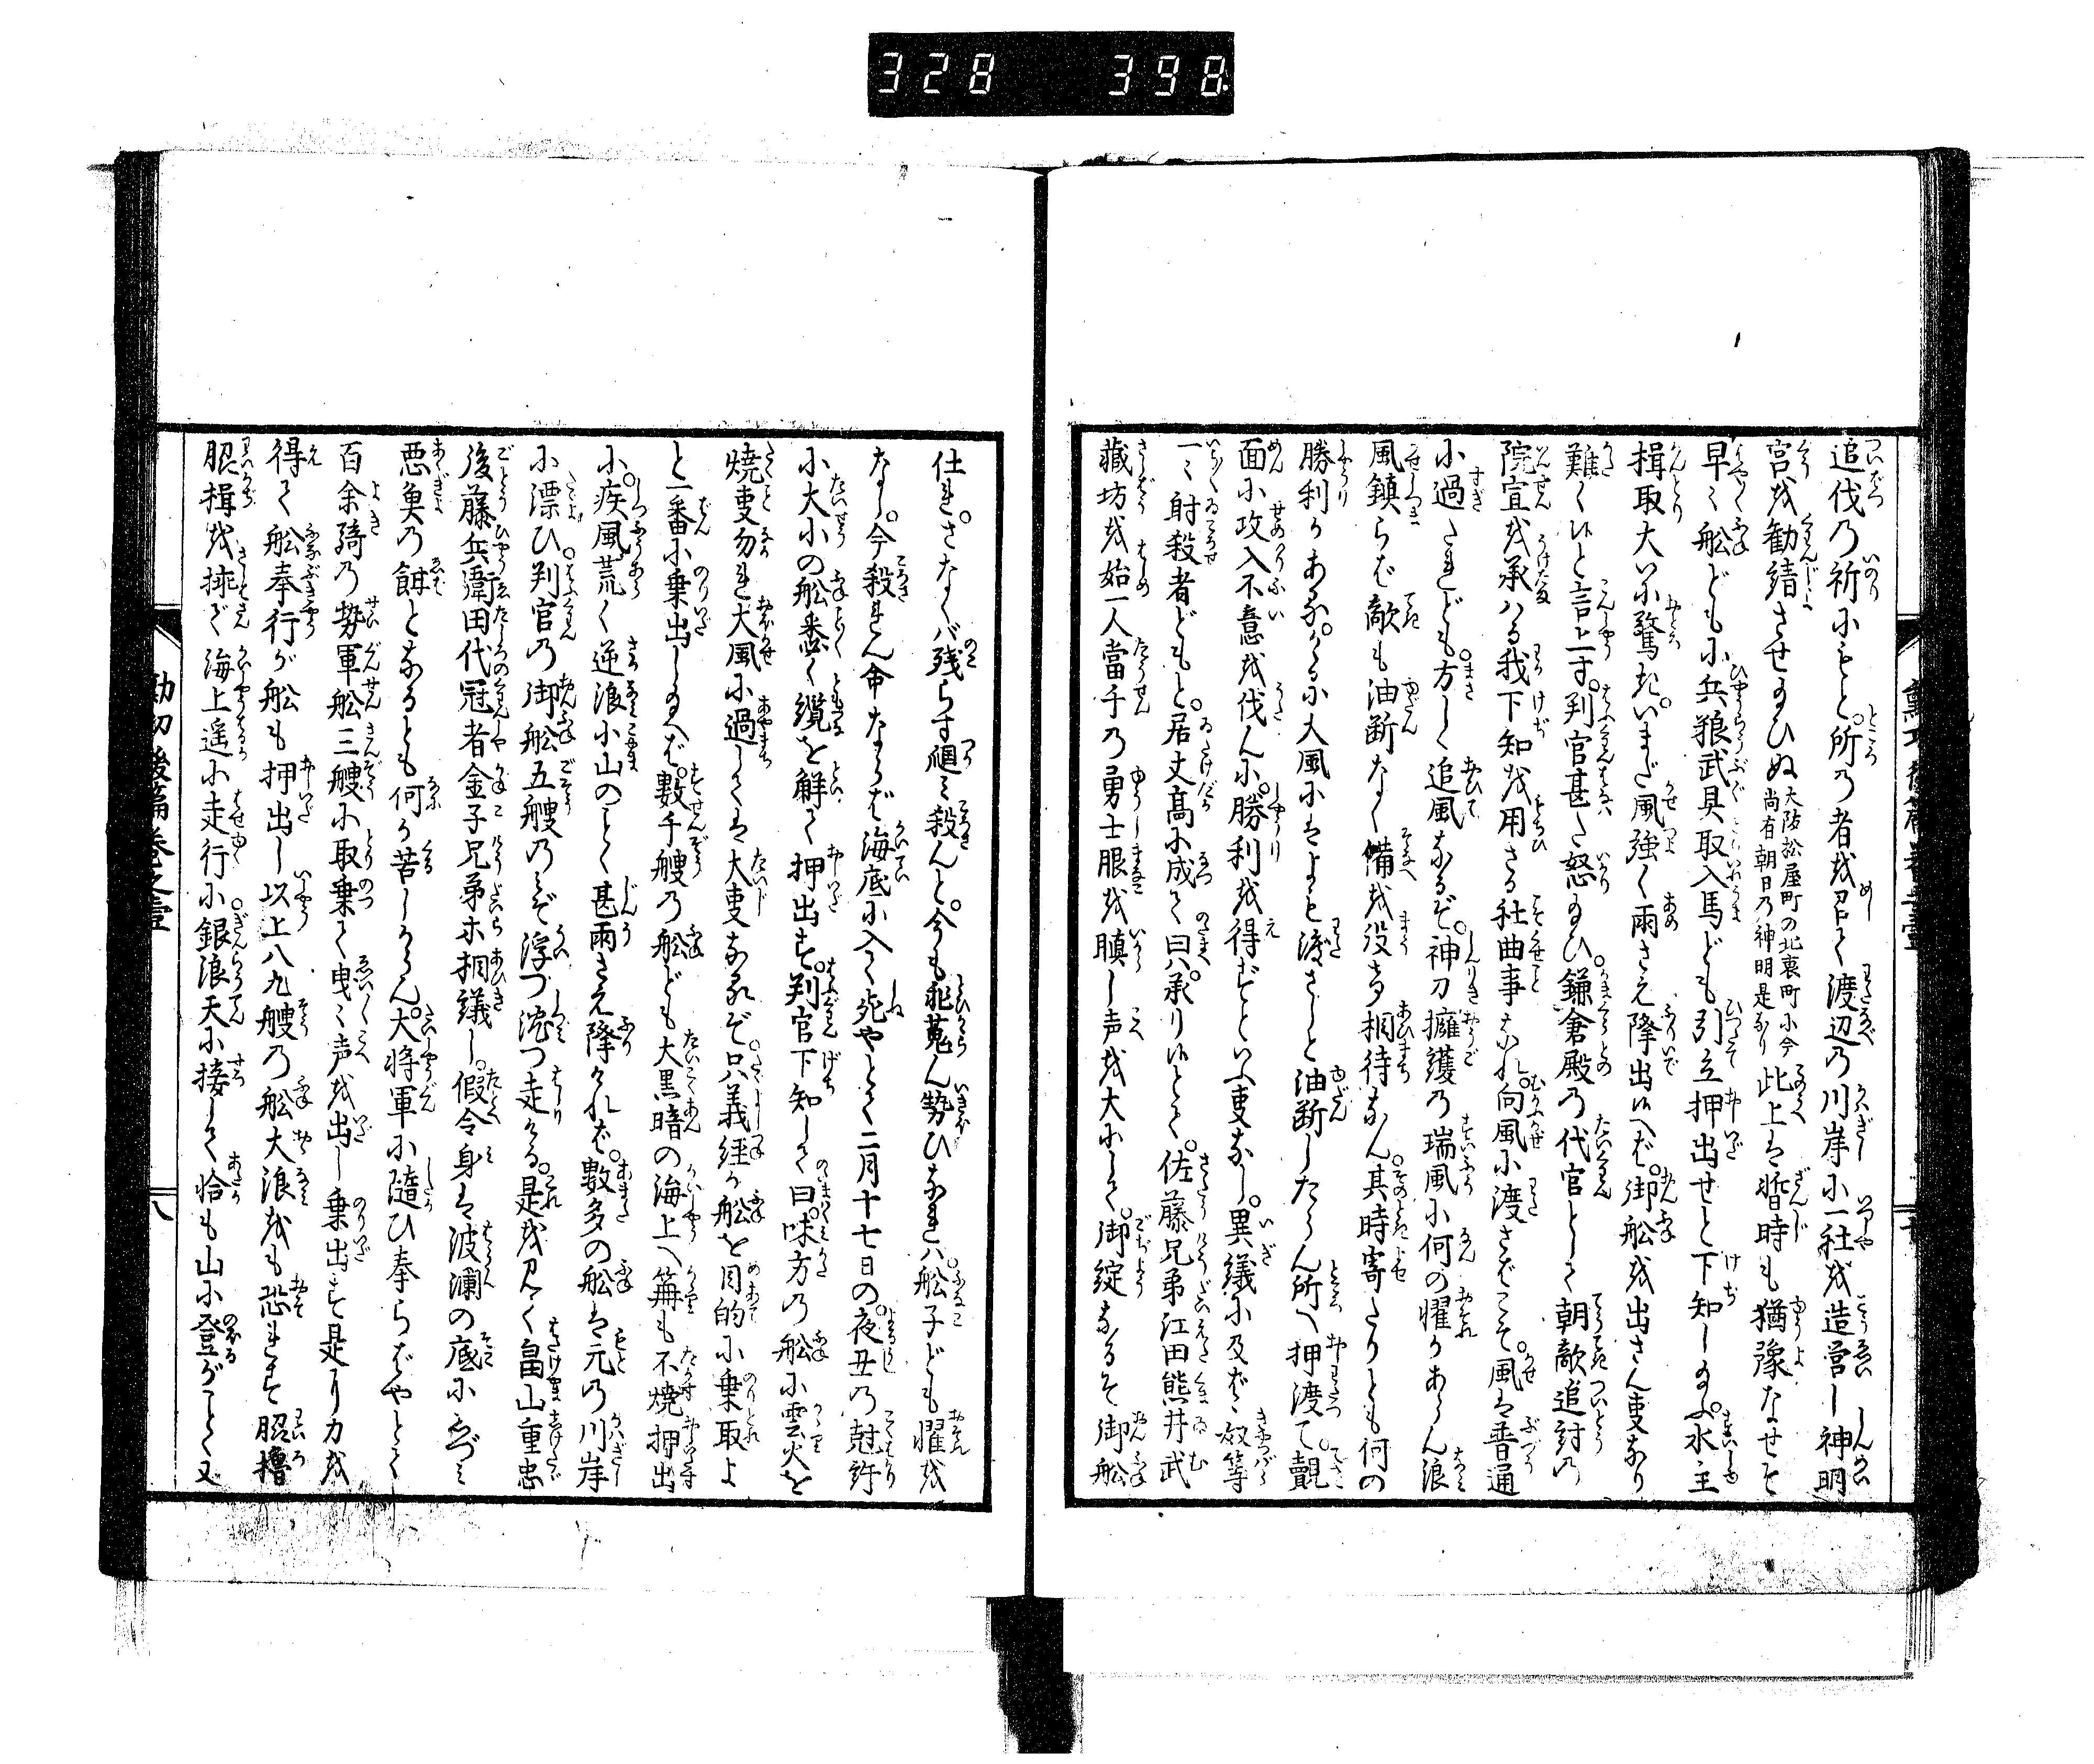 328 398
追伐乃祈にもと。所乃者を召て渡辺乃川岸に一社を造営し神明
宮を勧請させ給ひぬ大阪松屋町の北裏町に今尚有朝日乃神明是なり此上は暫時も猶豫なせそ
早く船どもに兵粮武具取入馬ども引立押出せと下知し給ふ。水主
揖取大いに驚き。いまだ風強く雨さえ降出候へば。御船を出さん事なり
難く候と言上す。判官甚だ怒給ひ。鎌倉殿乃代官として朝敵追討乃
院宣を承はる我下知を用ざる社曲事なれ。向風に渡さばこそ。風は普通
に過たれども。方しく追風なるぞ。神力擁護乃瑞風に何の懼かあらん浪
風鎮らば敵も油断なく備を設て相待なん。其時寄たりとも何の
勝利かあらん。かゝる大風にはよも渡さじと油断したらん所へ押渡て。覿
面に攻入不意を伐んに。勝利を得ずといふ事なし。異議に及ばゝ奴等
一々射殺者どもと。居丈高に成て曰へば。承り候とて。佐藤兄弟江田熊井武
蔵坊を始一人當千乃勇士眼を瞋し声を大にして。御綻なるぞ御船
仕れ。さなくバ残らず 殺んと。今も 勢ひなれハ。船子ども懼を
なし。今殺れん命ならば海底に入て死やとて二月十七日の夜丑乃尅許
に大小の船悉く纜を解て押出す。判官下知して曰。味方乃船に火を
焼事勿れ大風に過しては大事なるぞ。只義経が船を目的に乗取よ
と一番に乗出し給へば。數千艘乃船ども大黒暗の海上へ篝も不焼押出
に。疾風荒く逆浪小山のごとく甚雨さえ降ければ。數多の船は元乃川岸
に漂ひ。判官乃御船五艘乃みぞ浮づ沈つ走ける。是を見て畠山重忠
後藤兵衛田代冠者金子兄弟等相議し。假令身は波瀾の底にしづミ
悪魚乃餌となるとも何か苦しからん。大将軍に隨ひ奉らばやとて
百余騎乃勢軍船三艘に取乗て曳々声を出し乗出す是り力を
得て船奉行が船も押出し以上八九艘乃船大浪をも恐れず 櫓
揖を 海上遥に走行に。銀浪天に接して恰も山に登がごとく又
勲功後篇巻之壹
八